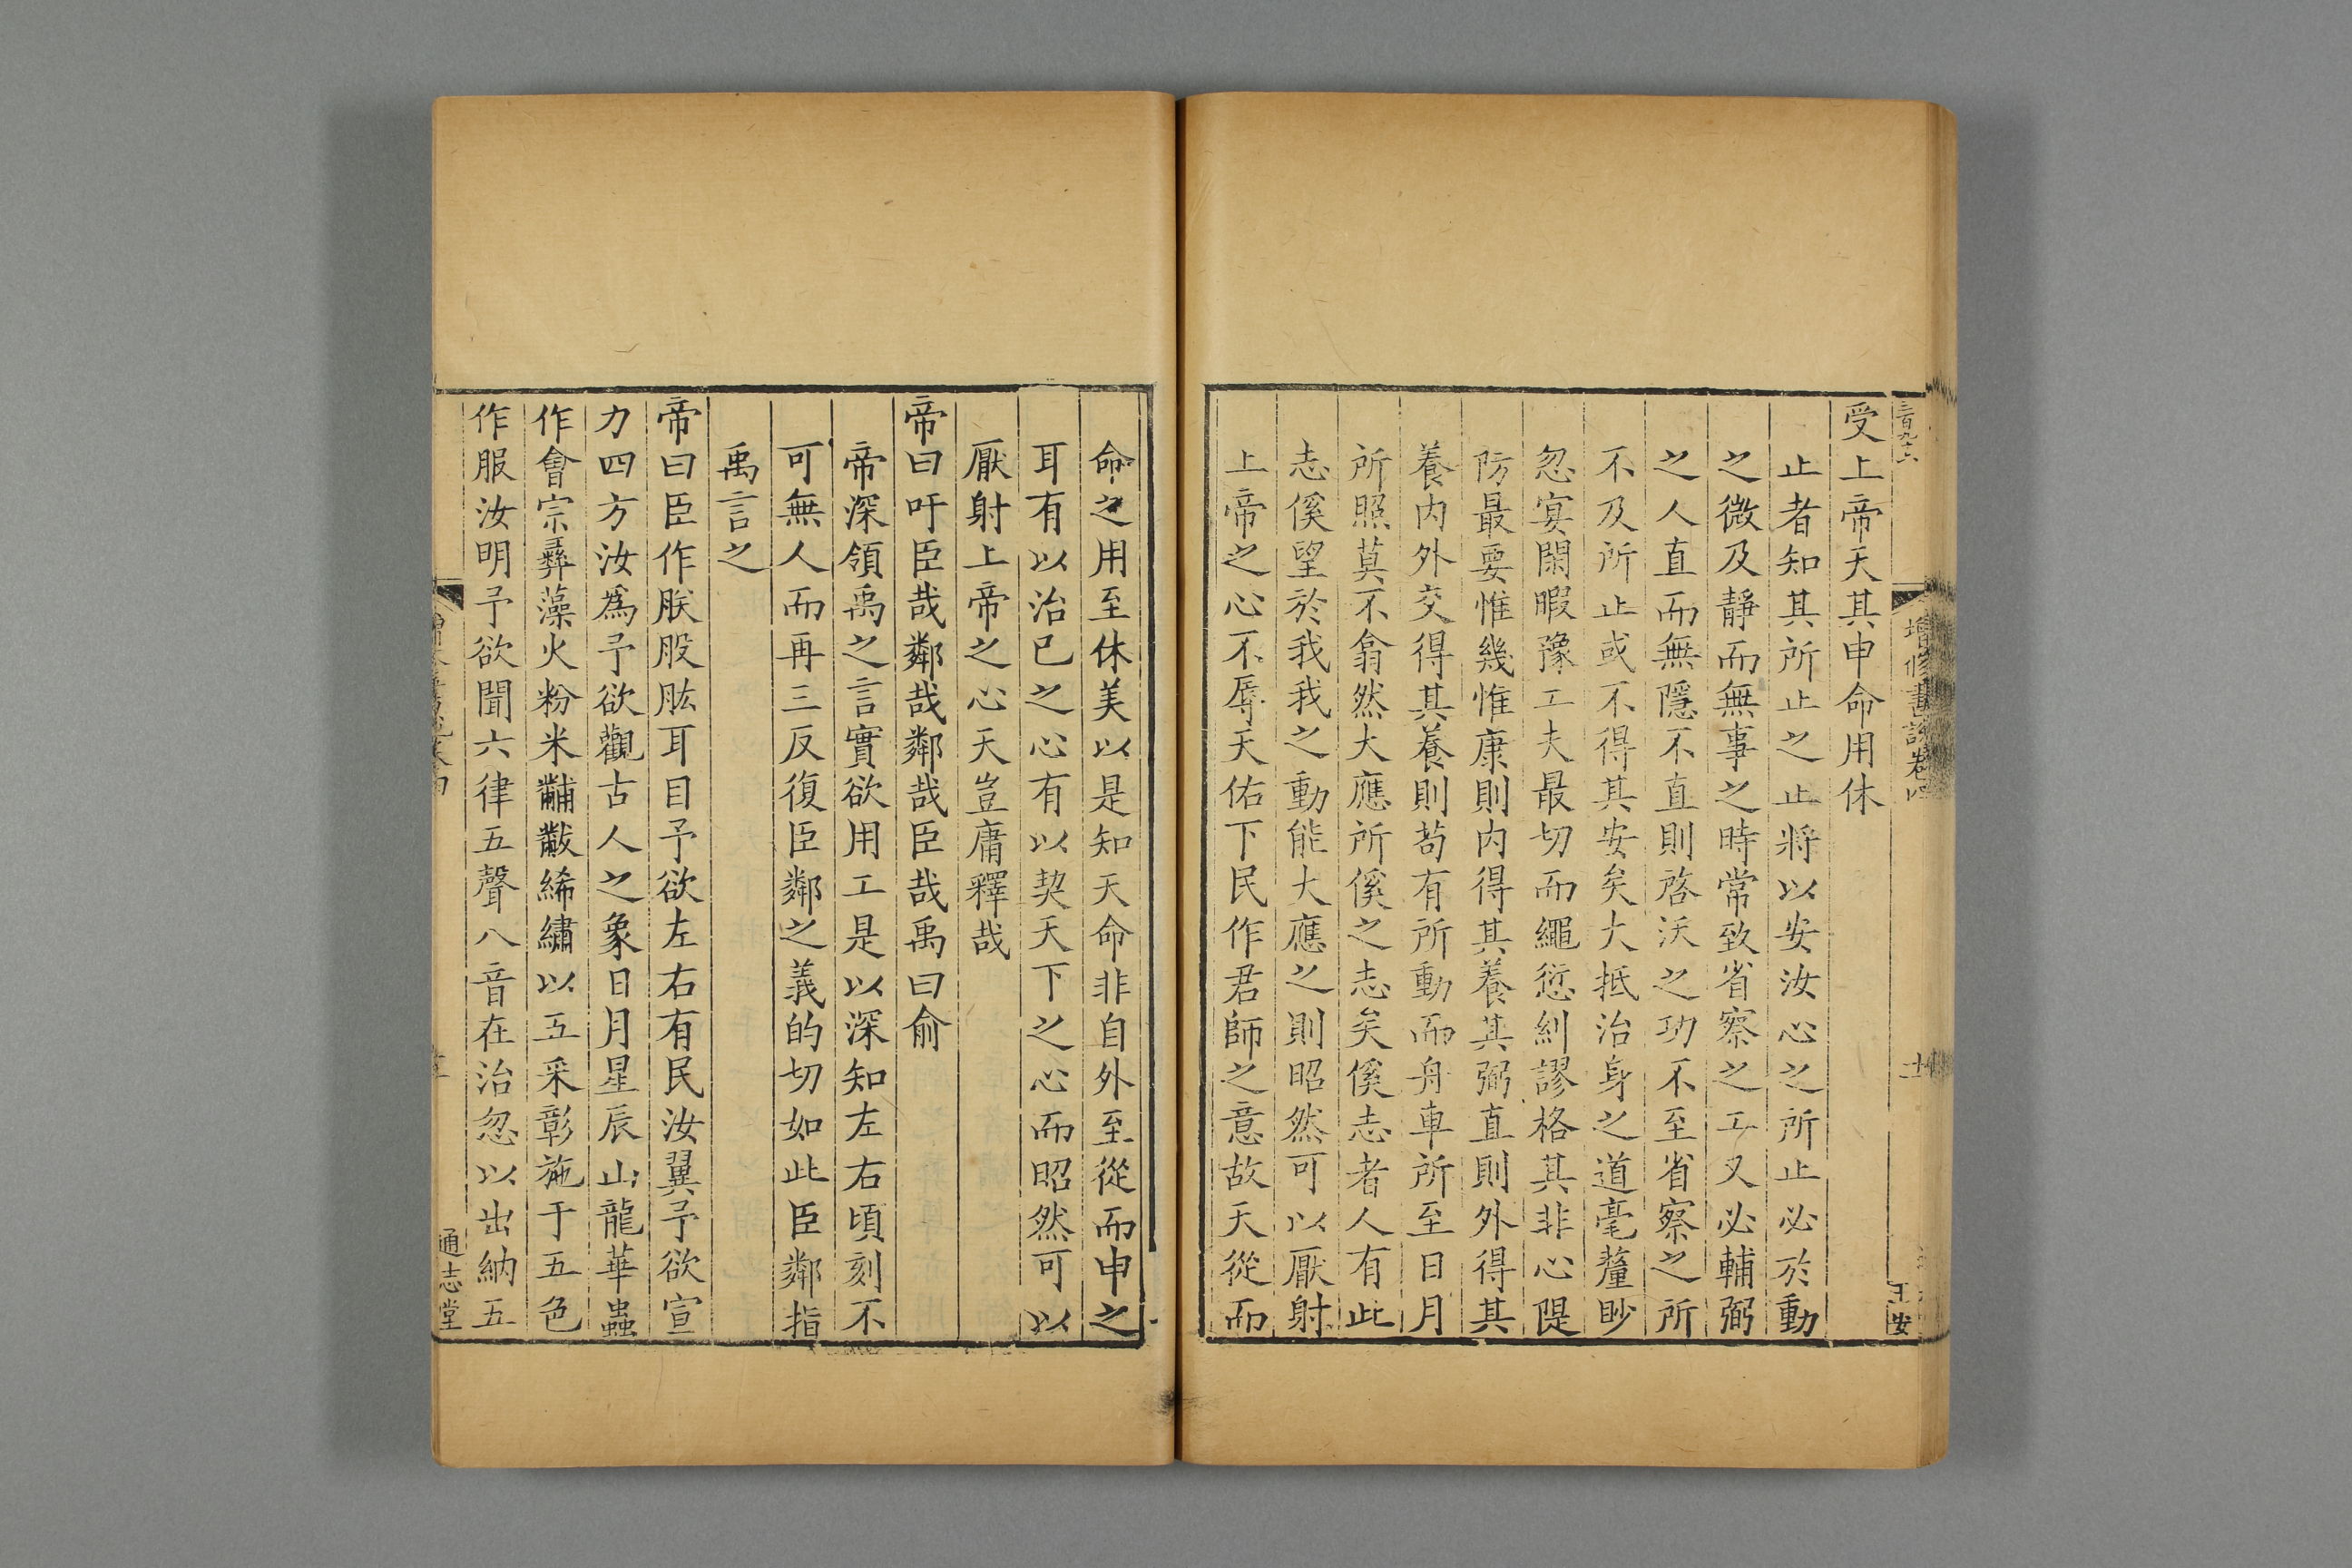 三百九十六
受上帝天其申命用休
止者知其所止之止將以安汝心之所止必於動
之微及靜而無事之時常致省察之工又必輔弼
之人直而無隱不直則啓沃之功不至省察之所
不及所止或不得其安矣大抵治身之道毫釐眇
忽宴閑暇豫工夫最切而繩愆糾謬格其非心隄
防最要惟幾惟康則内得其養其弼直則外得其
養内外交得其養則苟有所動而舟車所至日月
所照莫不翕然大應所傒之志矣傒志者人有此
志傒望於我我之動能大應之則昭然可以厭射
上帝之心不辱天佑下民作君師之意故天從而
增修書說卷
王安
命之用至休美以是知天命非自外至從而申之
耳有以治已之心有以契天下之心而昭然可以
厭射上帝之心天豈庸釋哉
帝曰吁臣哉鄰哉鄰哉臣哉禹曰俞
帝深領禹之言實欲用工是以深知左右頃刻不
可無人而再三反復臣鄰之義的切如此臣鄰指
禹言之
帝曰臣作朕股肱耳目予欲左右有民汝翼予欲宣
力四方汝爲予欲觀古人之象日月星辰山龍華蟲
作會宗彞藻火粉米黼黻絺繡以五采彰施于五色
作服汝明予欲聞六律五聲八音在治忽以出納五
通志堂